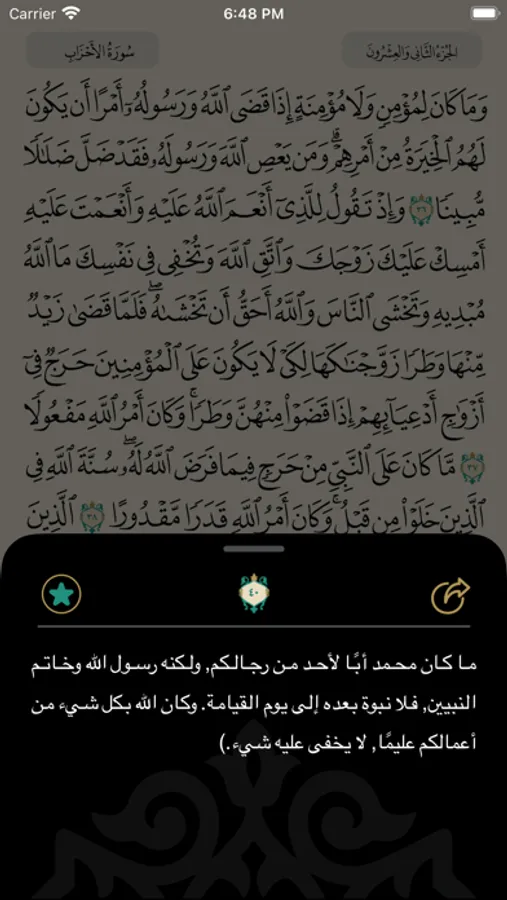 Carrier 6:48 PM
سُورَةُ الأَحْزَابِ
الجُزْءُ الثَّانِي وَالعِشْرُونَ
وَمَا كَانَ لِمُؤْمِنٍ وَلَا مُؤْمِنَةٍ إِذَا قَضَى ٱللَّهُ وَرَسُولُهُۥٓ أَمْرًا أَن يَكُونَ
لَهُمُ ٱلْخِيَرَةُ مِنْ أَمْرِهِمْ ۗ وَمَن يَعْصِ ٱللَّهَ وَرَسُولَهُۥ فَقَدْ ضَلَّ ضَلَٰلًا
مُّبِينًا ٣٦ وَإِذْ تَقُولُ لِلَّذِىٓ أَنْعَمَ ٱللَّهُ عَلَيْهِ وَأَنْعَمْتَ عَلَيْهِ
أَمْسِكْ عَلَيْكَ زَوْجَكَ وَٱتَّقِ ٱللَّهَ وَتُخْفِى فِى نَفْسِكَ مَا ٱللَّهُ
مُبْدِيهِ وَتَخْشَى ٱلنَّاسَ وَٱللَّهُ أَحَقُّ أَن تَخْشَىٰهُ ۖ فَلَمَّا قَضَىٰ زَيْدٌ
مِّنْهَا وَطَرًا زَوَّجْنَٰكَهَا لِكَىْ لَا يَكُونَ عَلَى ٱلْمُؤْمِنِينَ حَرَجٌ فِىٓ
أَزْوَٰجِ أَدْعِيَآئِهِمْ إِذَا قَضَوْا۟ مِنْهُنَّ وَطَرًا ۚ وَكَانَ أَمْرُ ٱللَّهِ مَفْعُولًا
٣٧ مَّا كَانَ عَلَى ٱلنَّبِىِّ مِنْ حَرَجٍ فِيمَا فَرَضَ ٱللَّهُ لَهُۥ ۖ سُنَّةَ ٱللَّهِ فِى
ٱلَّذِينَ خَلَوْا۟ مِن قَبْلُ ۚ وَكَانَ أَمْرُ ٱللَّهِ قَدَرًا مَّقْدُورًا ٣٨ ٱلَّذِينَ
٤٠
ما كان محمد أبًا لأحد من رجالكم, ولكنه رسول الله وخاتم
النبيين, فلا نبوة بعده إلى يوم القيامة. وكان الله بكل شيء من
أعمالكم عليمًا, لا يخفى عليه شيء.)